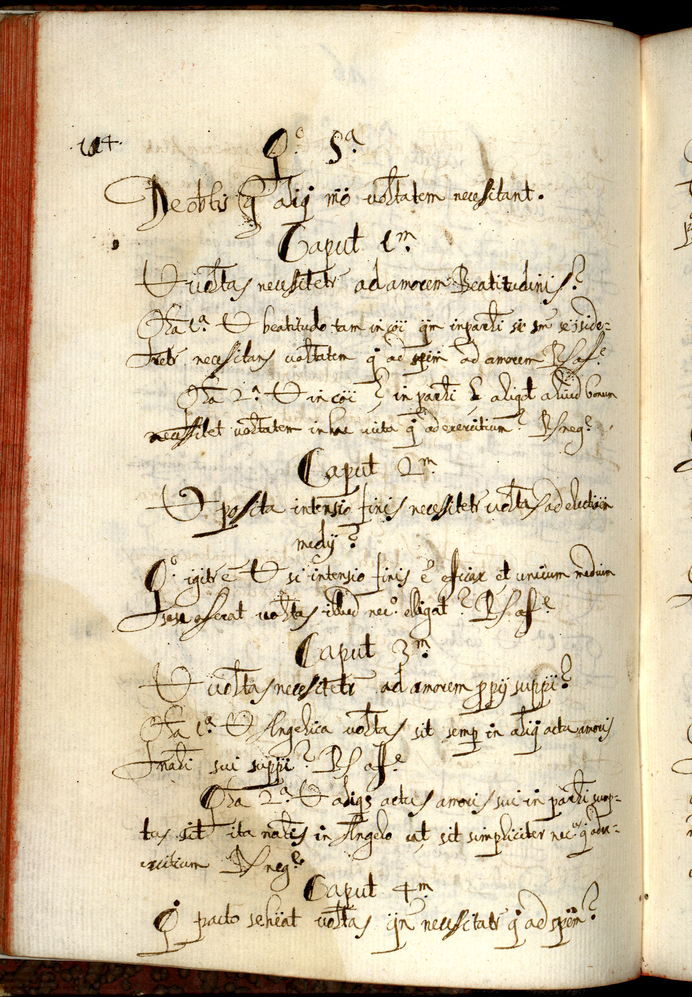 114.
Q.º 5.ª
De obtis q̃ aliq̃ mõ voltatem necessitant.
Caput 1.m
U voltas necessitetr ad amorem Beatitudinis?
Qta 1.ª U beatitudo tam in coi qm in parli
necessitans voltatem q ad spem ad amorem Rs aff.e
Qta 2.ª U in coi, in parli aliqd aliud bonum
necessitet voltatem in hac vita q ad exercitium? Rs neg.e
Caput 2.m
U posita intensio finis necessitetr voltas ad election
medij?
Q.º igitr e U si intensio finis e eficax et unicum medium
sese oferat voltas illud nec.o eligat? Rs aff.e
Caput 3.m
U voltas necessitetr ad amorem ppij suppii?
Qta 1.ª U Angelica voltas sit semp in aliq actu amoris
nali sui suppii? Rs aff.e
Qta 2.ª U aliqs actus amoris sui in parli sump-
tus sit ita nalis in Angelo ut sit simpliciter nec.us q ad ex-
ercitium Rs neg.e
Caput 4.m
Q pacto se heat voltas qn necessitatr q ad spem?